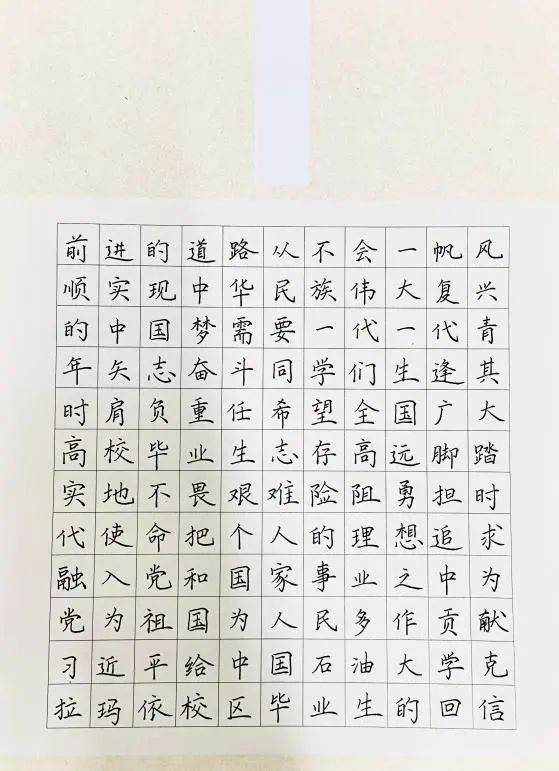 前进的道路从不会一帆风
顺实现中华民族伟大复兴
的中国梦需要一代一代青
年矢志奋斗同学们生逢其
时肩负重任希望全国广大
高校毕业生志存高远脚踏
实地不畏艰难险阻勇担时
代使命把个人的理想追求
融入党和国家事业之中为
党为祖国为人民多作贡献
习近平给中国石油大学克
拉玛依校区毕业生的回信